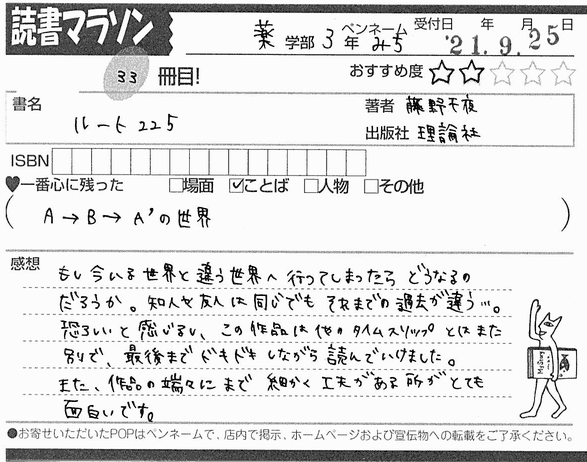 読書マラソン
薬 学部 3 年 ペンネーム みち 受付日 年 月 日 '21.9.25
33 冊目! おすすめ度 ☆☆☆☆☆
書名 ルート225
著者 藤野千夜
出版社 理論社
ISBN
♥一番心に残った □場面 ☑ことば □人物 □その他
( A→B→A'の世界 )
感想
もし今いる世界と違う世界へ行ってしまったらどうなるの
だろうか。知人や友人は同じでもそれまでの過去が違う…。
恐ろしいと感じるし、この作品は他のタイムスリップとはまた
別で、最後までドキドキしながら読んでいけました。
また、作品の端々にまで細かく工夫がある所がとても
面白いです。
Mystery
●お寄せいただいたPOPはペンネームで、店内で掲示、ホームページおよび宣伝物への転載をご了承ください。